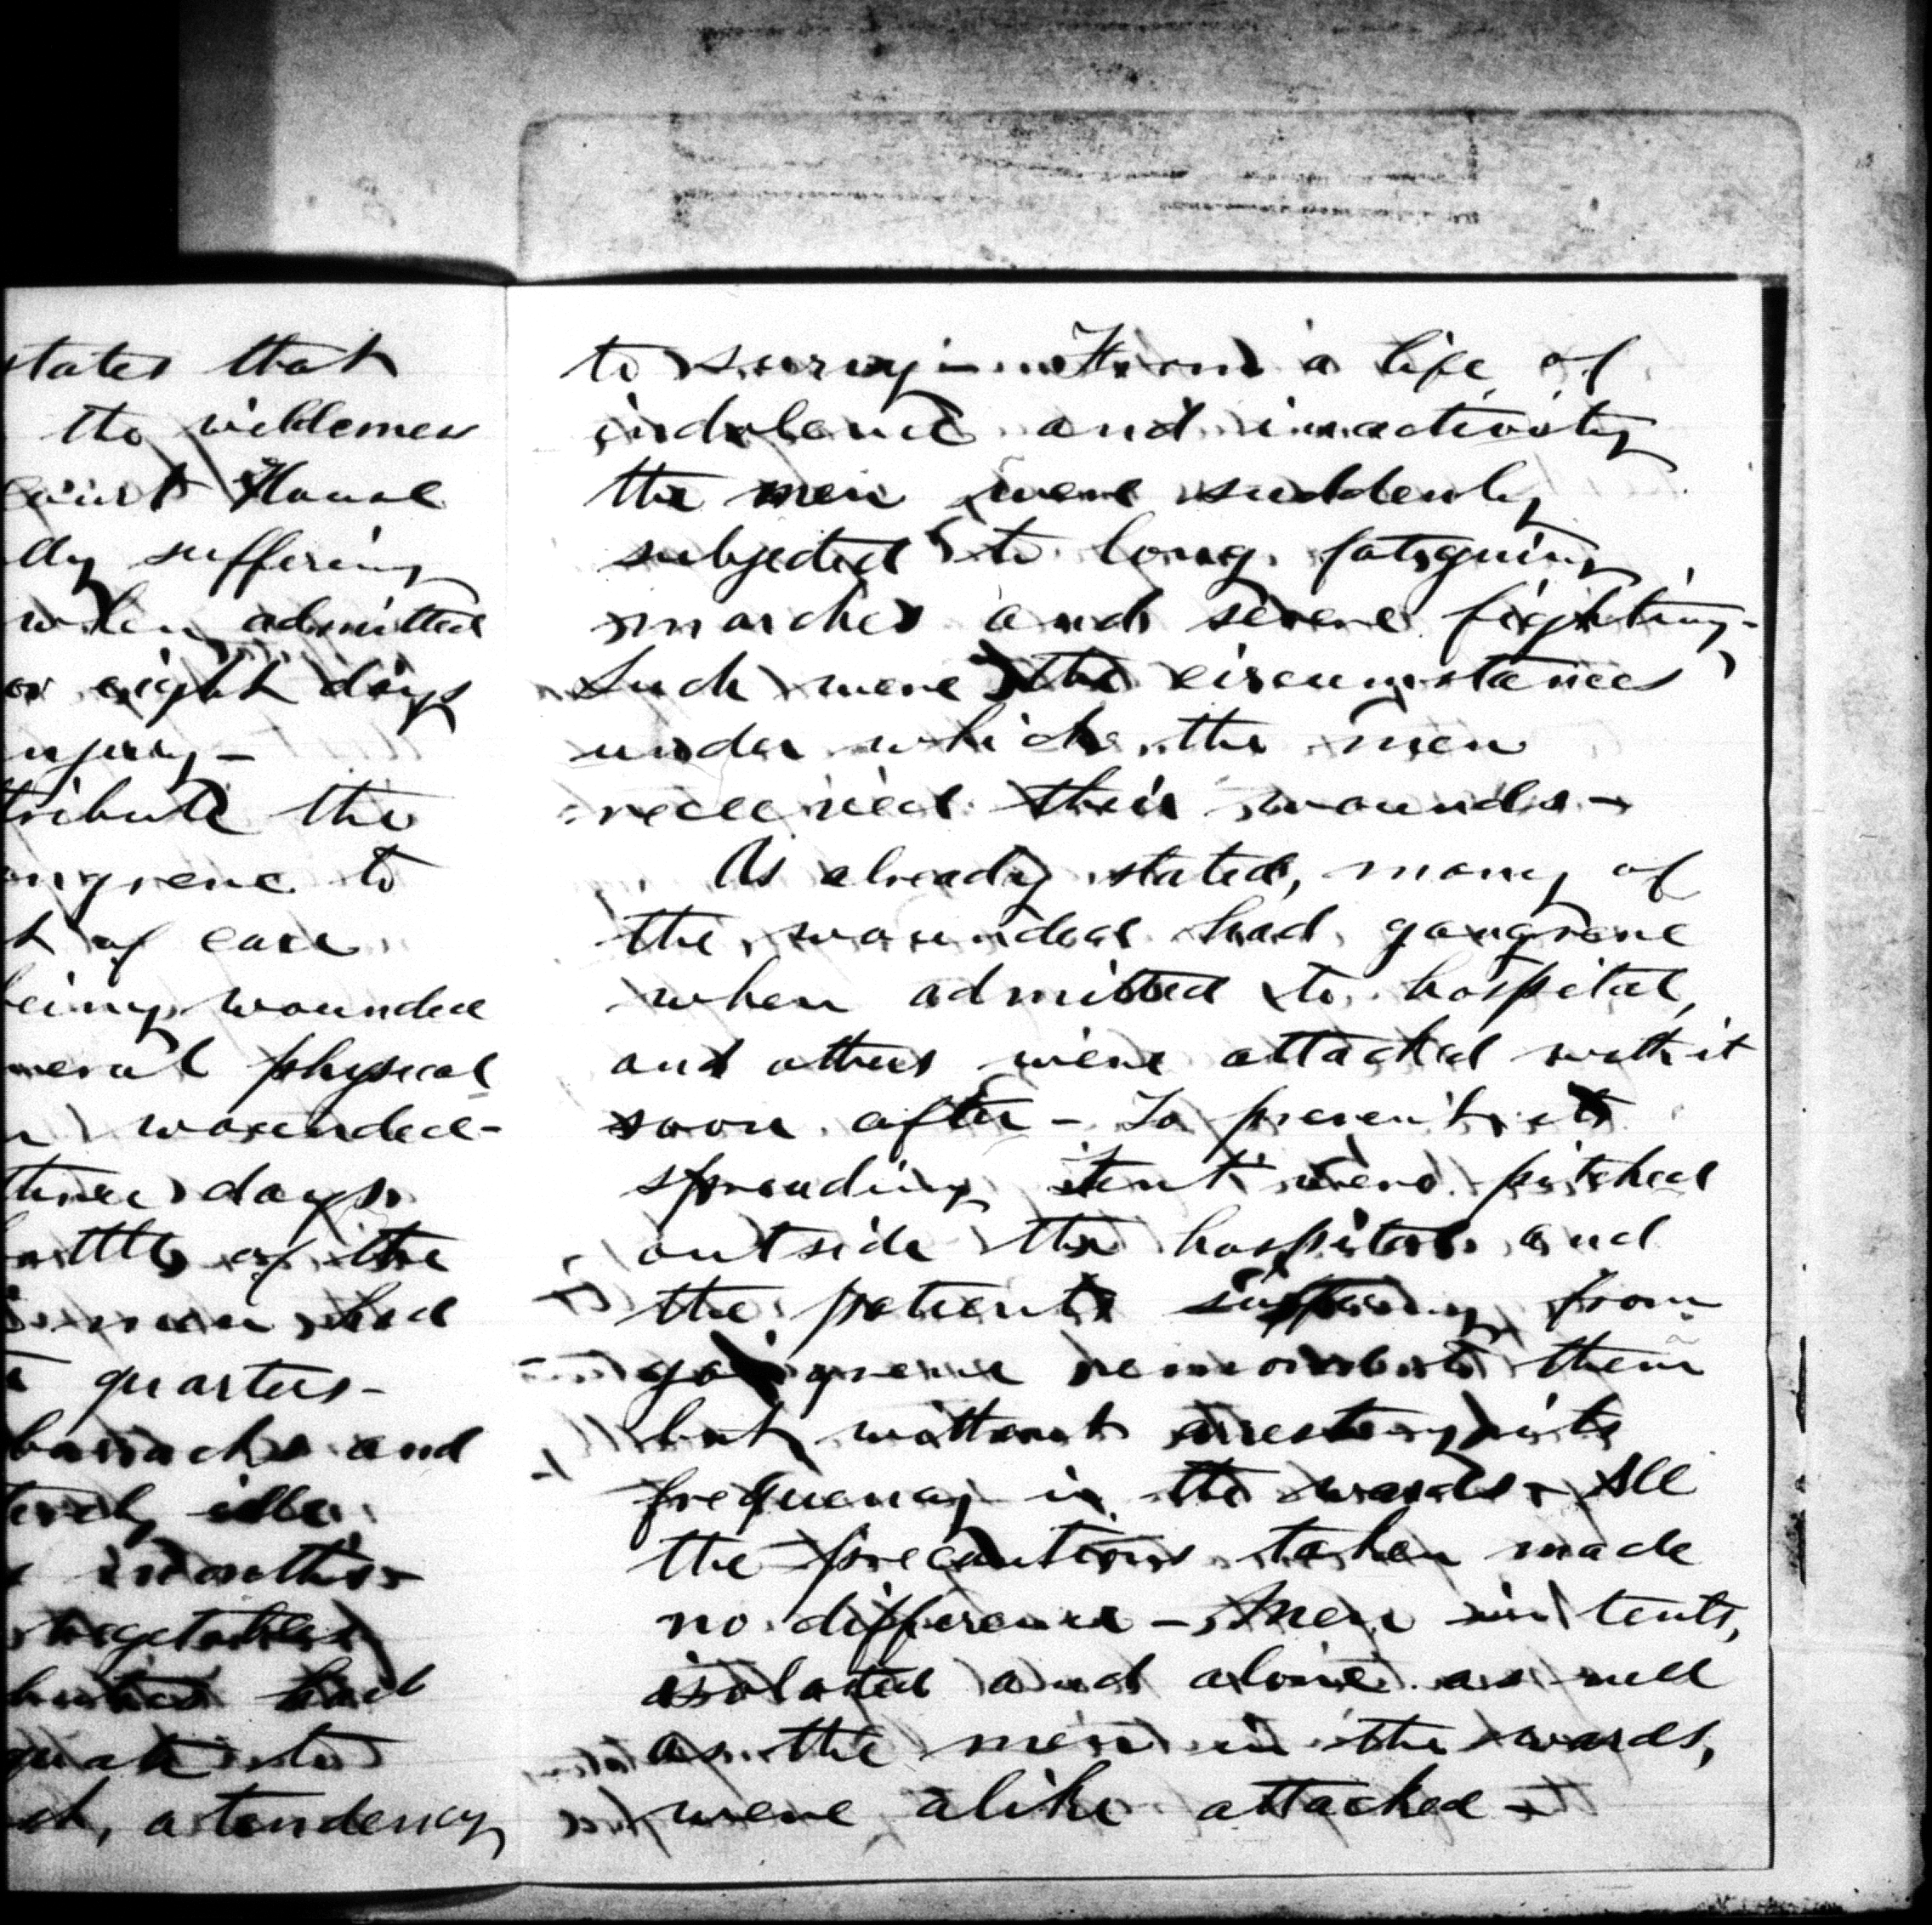 states that
the wilderness
Court House
lly suffering
when admitted
or eight days
njury -
tribute the
ngrene to
t of care
being wounded
neral physical
n wounded -
three days
battle of the
men had
quarters -
barracks and
idle
months -
vegetables
had
to
ch, a tendency
to scurvy - From a life of
indolence and inactivity
the men were suddenly
subjected to long fatiguing
marches and severe fighting -
Such were the circumstances
under which the men
received their wounds -
As already stated, many of
the wounded had gangrene
when admitted to hospital,
and others were attacked with it
soon after - To prevent its
spreading tents were pitched
outside the hospital and
the patients suffering from
gangrene removed to them
but without arresting its
frequency in the wards - All
the precautions taken made
no difference - Men in tents,
isolated and alone as well
as the men in the wards,
were alike attacked -